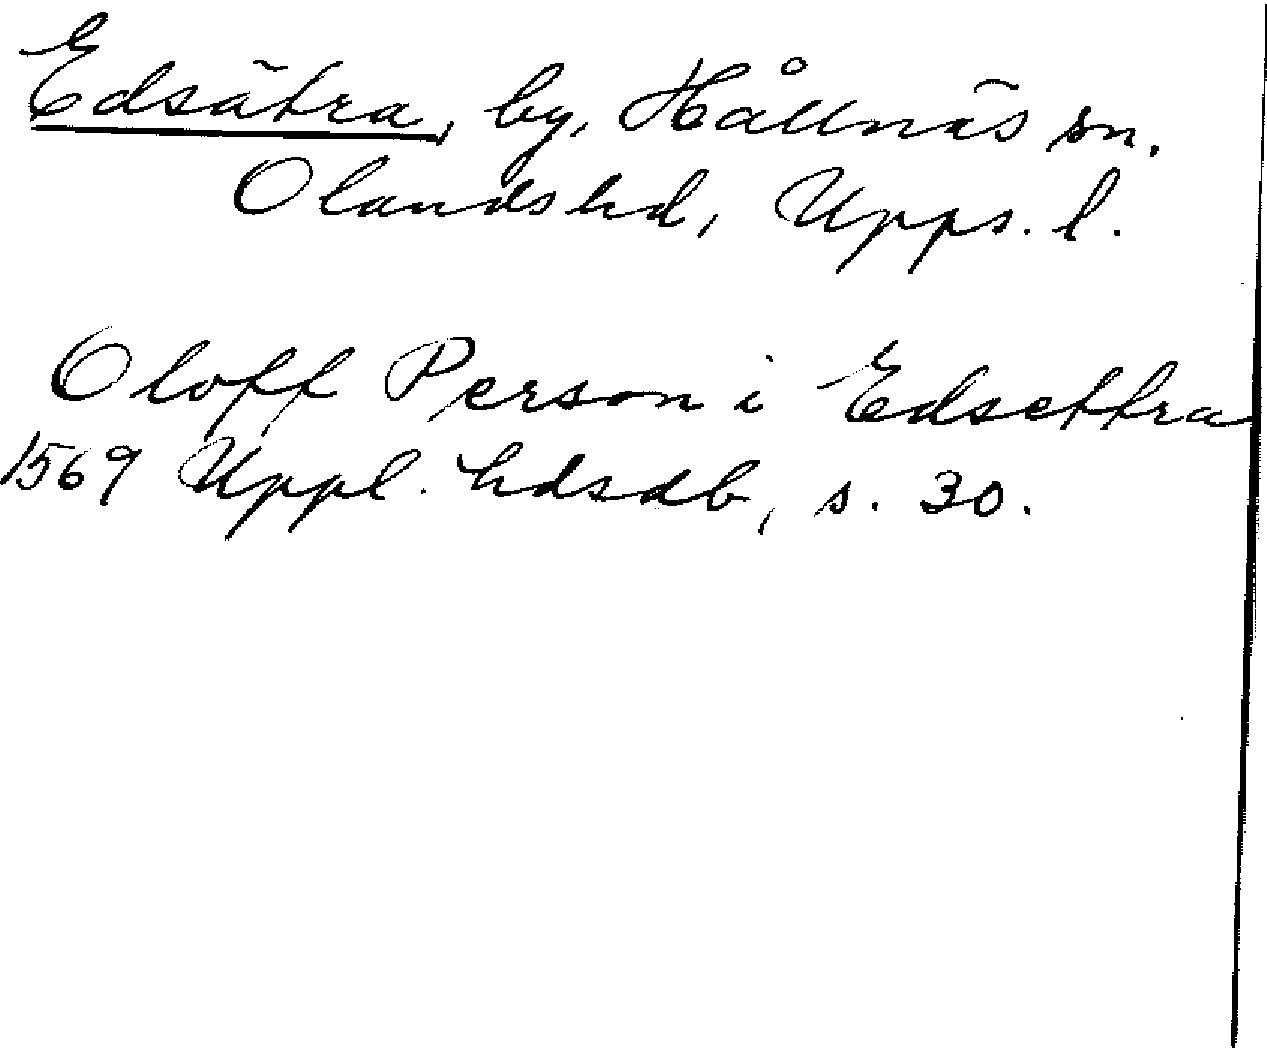 Edsätra, by, Hållnäs sn.
Olands hd, Upps. l.
Oloff Person i Edsettra
1569 Uppl. hdsdb, s. 30.